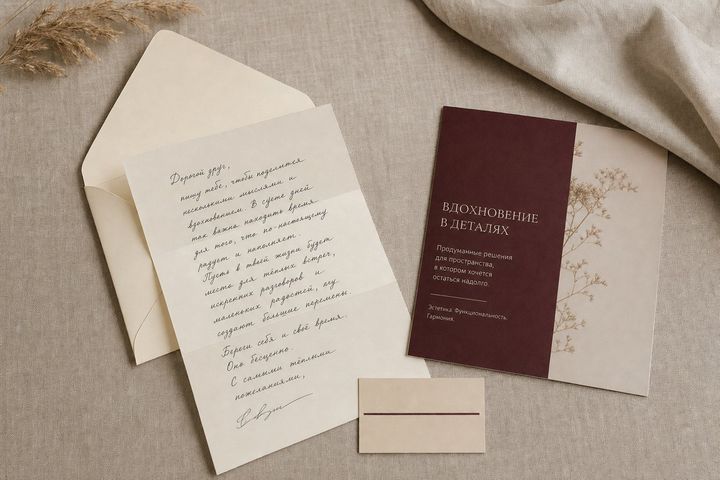 Дорогой друг,
пишу тебе, чтобы поделиться
несколькими мыслями и
вдохновением. В суете дней
так важно находить время
для того, что по-настоящему
радует и наполняет.
Пусть в твоей жизни будет
место для тёплых встреч,
искренних разговоров и
маленьких радостей,
создают большие перемены.
Береги себя и своё время.
Оно бесценно.
С самыми тёплыми
пожеланиями,
ВДОХНОВЕНИЕ
В ДЕТАЛЯХ
Продуманные решения
для пространства,
в котором хочется
остаться надолго.
Эстетика. Функциональность.
Гармония.